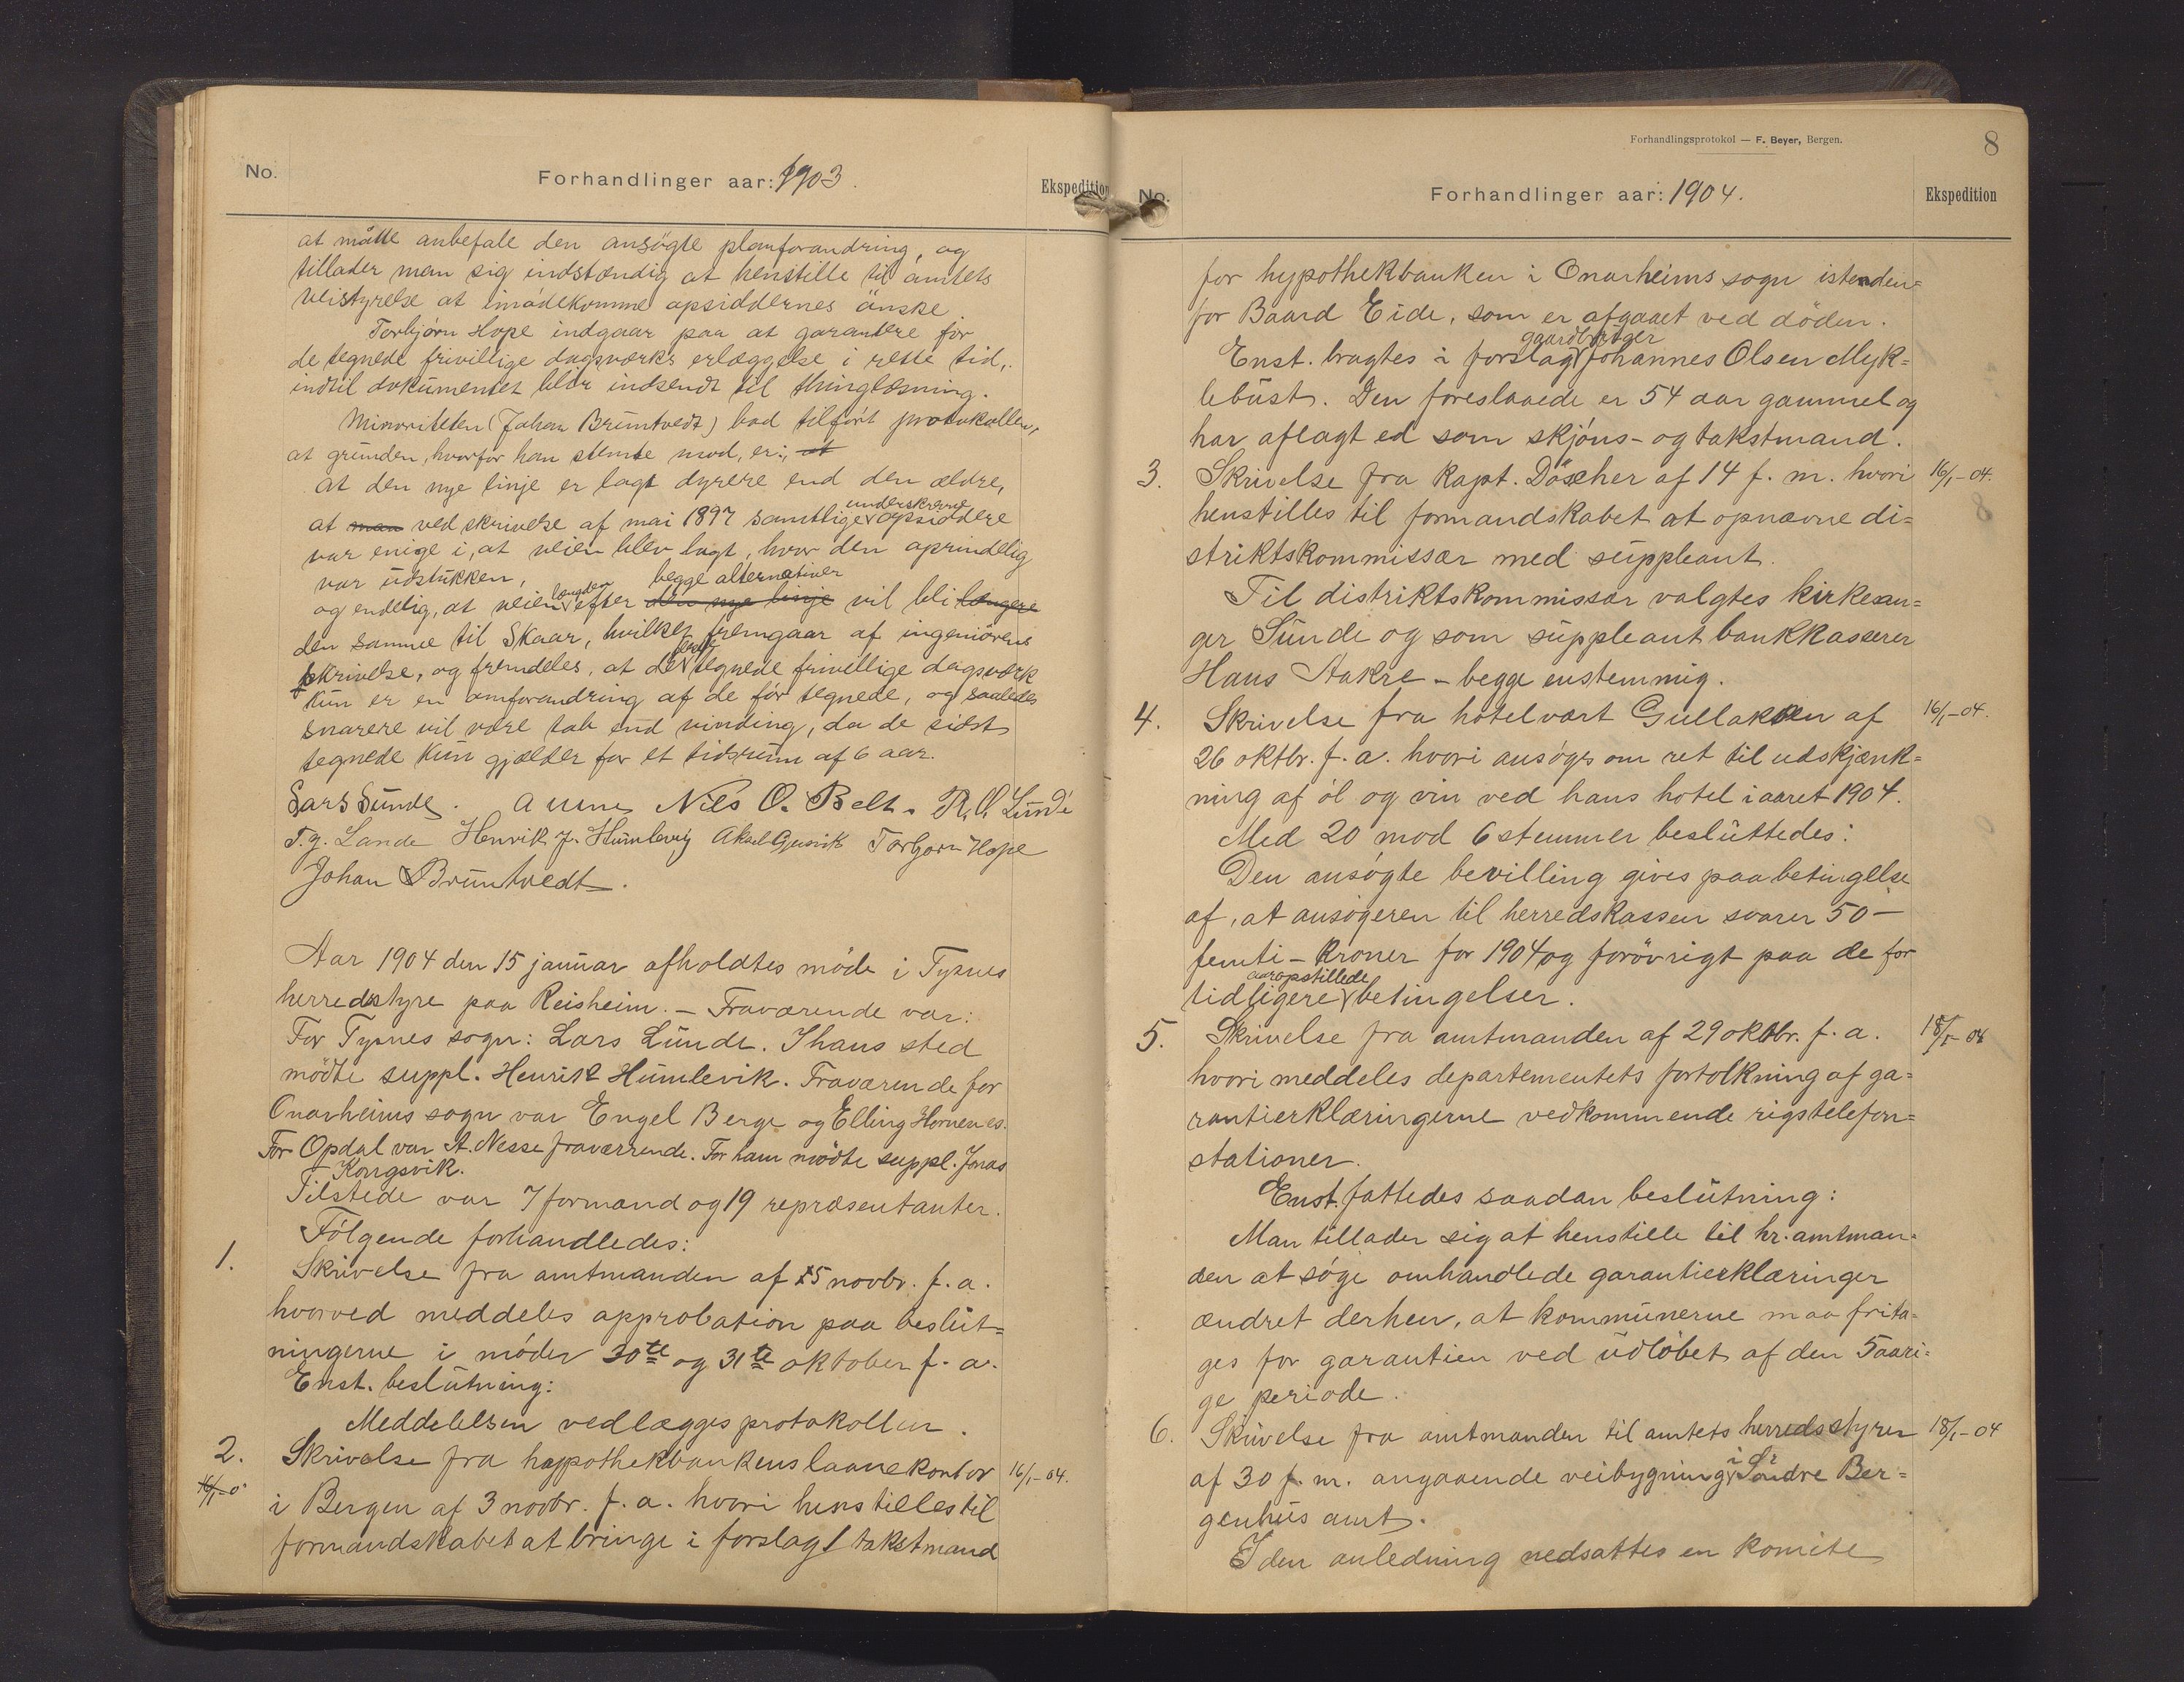 No.
Forhandlinger aar: 1903.
Ekspedition
at måtte anbefale den ansögte planforandring, og
tillader man sig indstændig at henstille til amtets
veistyrelse at imødekomme opsiddernes önske
Torbjørn Hope indgaar paa at garantere for
de tegnede frivillige dagsværks erlæggelse i rette tid,
indtil dokumentet blir indsendt til thinglæsning.
Minoriteten (Johan Bruntvedt) bad tilført protokollen,
at grunden, hvorfor han stemte mod, er: at
at den nye linje er lagt dyrere end den ældre,
underskrevne
at man ved skrivelse af mai 1897 samtlige opsiddere
var enige i, at veien blev lagt, hvor den oprindelig
var udstukken,
længden begge alternativer
og endelig, at veien efter den nye linje vil bli længere
den samme til Skaar, hvilket fremgaar af ingeniørens
skrivelse, og fremdeles, at de tegnede frivillige dagsværk
kun er en omforandring af de før tegnede, og saaledes
snarere vil være tab end vinding, da de sidst
tegnede kun gjælder for et tidsrum af 6 aar.
Lars Sunde. Nils O. Belt. R. O. Lunde
T. g. Lande Henrik J. Humlevig Aksel Gjersvik Torbjørn Hope
Johan Bruntvedt.
Aar 1904 den 15 januar afholdtes möde i Tysnes
herredsstyre paa Reisheim. – Fraværende var:
For Tysnes sogn: Lars Lunde. I hans sted
mödte suppl. Henrik Humlevik. Fraværende for
Onarheims sogn var Engel Berge og Elling Hornenes.
For Opdal var A. Nesse fraværrende. For ham mödte suppl. Jonas
Kongsvik.
Tilstede var 7 formænd og 19 repræsentanter.
Følgende forhandledes:
1.
Skrivelse fra amtmanden af 15 novbr. f. a.
hvorved meddeles approbation paa beslut=
ningerne i møder 30te og 31te oktober f. a.
Enst. beslutning:
Meddelelsen vedlægges protokollen.
2.
Skrivelse fra hypothekbankens laanekontor
16/1-04.
16/1-0
i Bergen af 3 novbr. f. a. hvori henstilles til
formandskabet at bringe i forslag 1 takstmand
Forhandlingsprotokol — F. Beyer, Bergen.
8
No.
Forhandlinger aar: 1904.
Ekspedition
for hypothekbanken i Onarheims sogn istenden=
for Baard Eide, som er afgaaet ved döden.
gaardbruger
Enst. bragtes i forslag Johannes Olsen Myk=
lebust. Den foreslaaede er 54 aar gammel og
har aflagt ed som skjöns- og takstmand.
3.
Skrivelse fra kapt. Döscher af 14 f. m. hvori
16/1-04.
henstilles til formandskabet at opnævne di=
striktskommissær med suppleant.
Til distriktskommissær valgtes kirkesan=
ger Sunde og som suppleant bankkasserer
Hans Aakre – begge enstemmig.
4.
Skrivelse fra hotelvært Gullaksen af
16/1-04.
26 oktbr. f. a. hvori ansøges om ret til udskjænk=
ning af öl og vin ved hans hotel i aaret 1904.
Med 20 mod 6 stemmer besluttedes:
Den ansøgte bevilling gives paa betingelse
af, at ansøgeren til herredskassen svarer 50 –
femti – kroner for 1904 og forövrigt paa de for
aar opstillede
tidligere betingelser.
5.
Skrivelse fra amtmanden af 29 oktbr. f. a.
18/1-04
hvori meddeles departementets fortolkning af ga=
rantierklæringerne vedkommende rigstelefon=
stationer.
Enst. fattedes saadan beslutning:
Man tillader sig at henstille til hr. amtman=
den at søge omhandlede garantierklæringer
ændret derhen, at kommunerne maa frita=
ges for garantien ved udløbet af den 5 aari=
ge periode.
6.
Skrivelse fra amtmanden til amtets herredsstyrer
18/1-04
af 30 f. m. angaaende veibygning i Söndre Ber=
genhus amt.
I den anledning nedsattes en komite